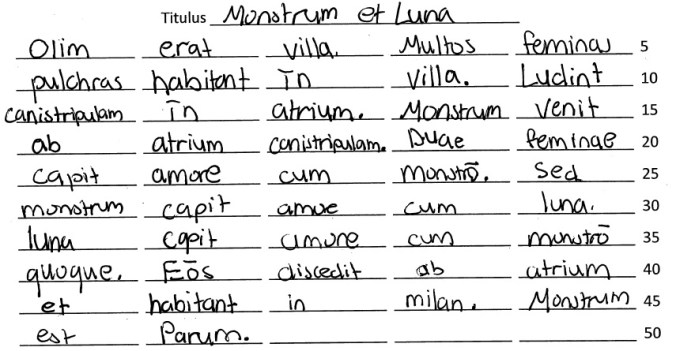 Titulus Monstrum et Luna
Olim erat villa. Multos feminas 5
pulchras habitant īn villa. Ludint 10
canistripulam īn atrium. Monstrum venit 15
ab atrium canistripulam. Duae feminae 20
capit amore cum monstrō. Sed 25
monstrum capit amore cum luna. 30
luna capit amore cum monstrō 35
quoque. Eōs discedit ab atrium 40
et habitant in milan. Monstrum 45
est Parum. 50